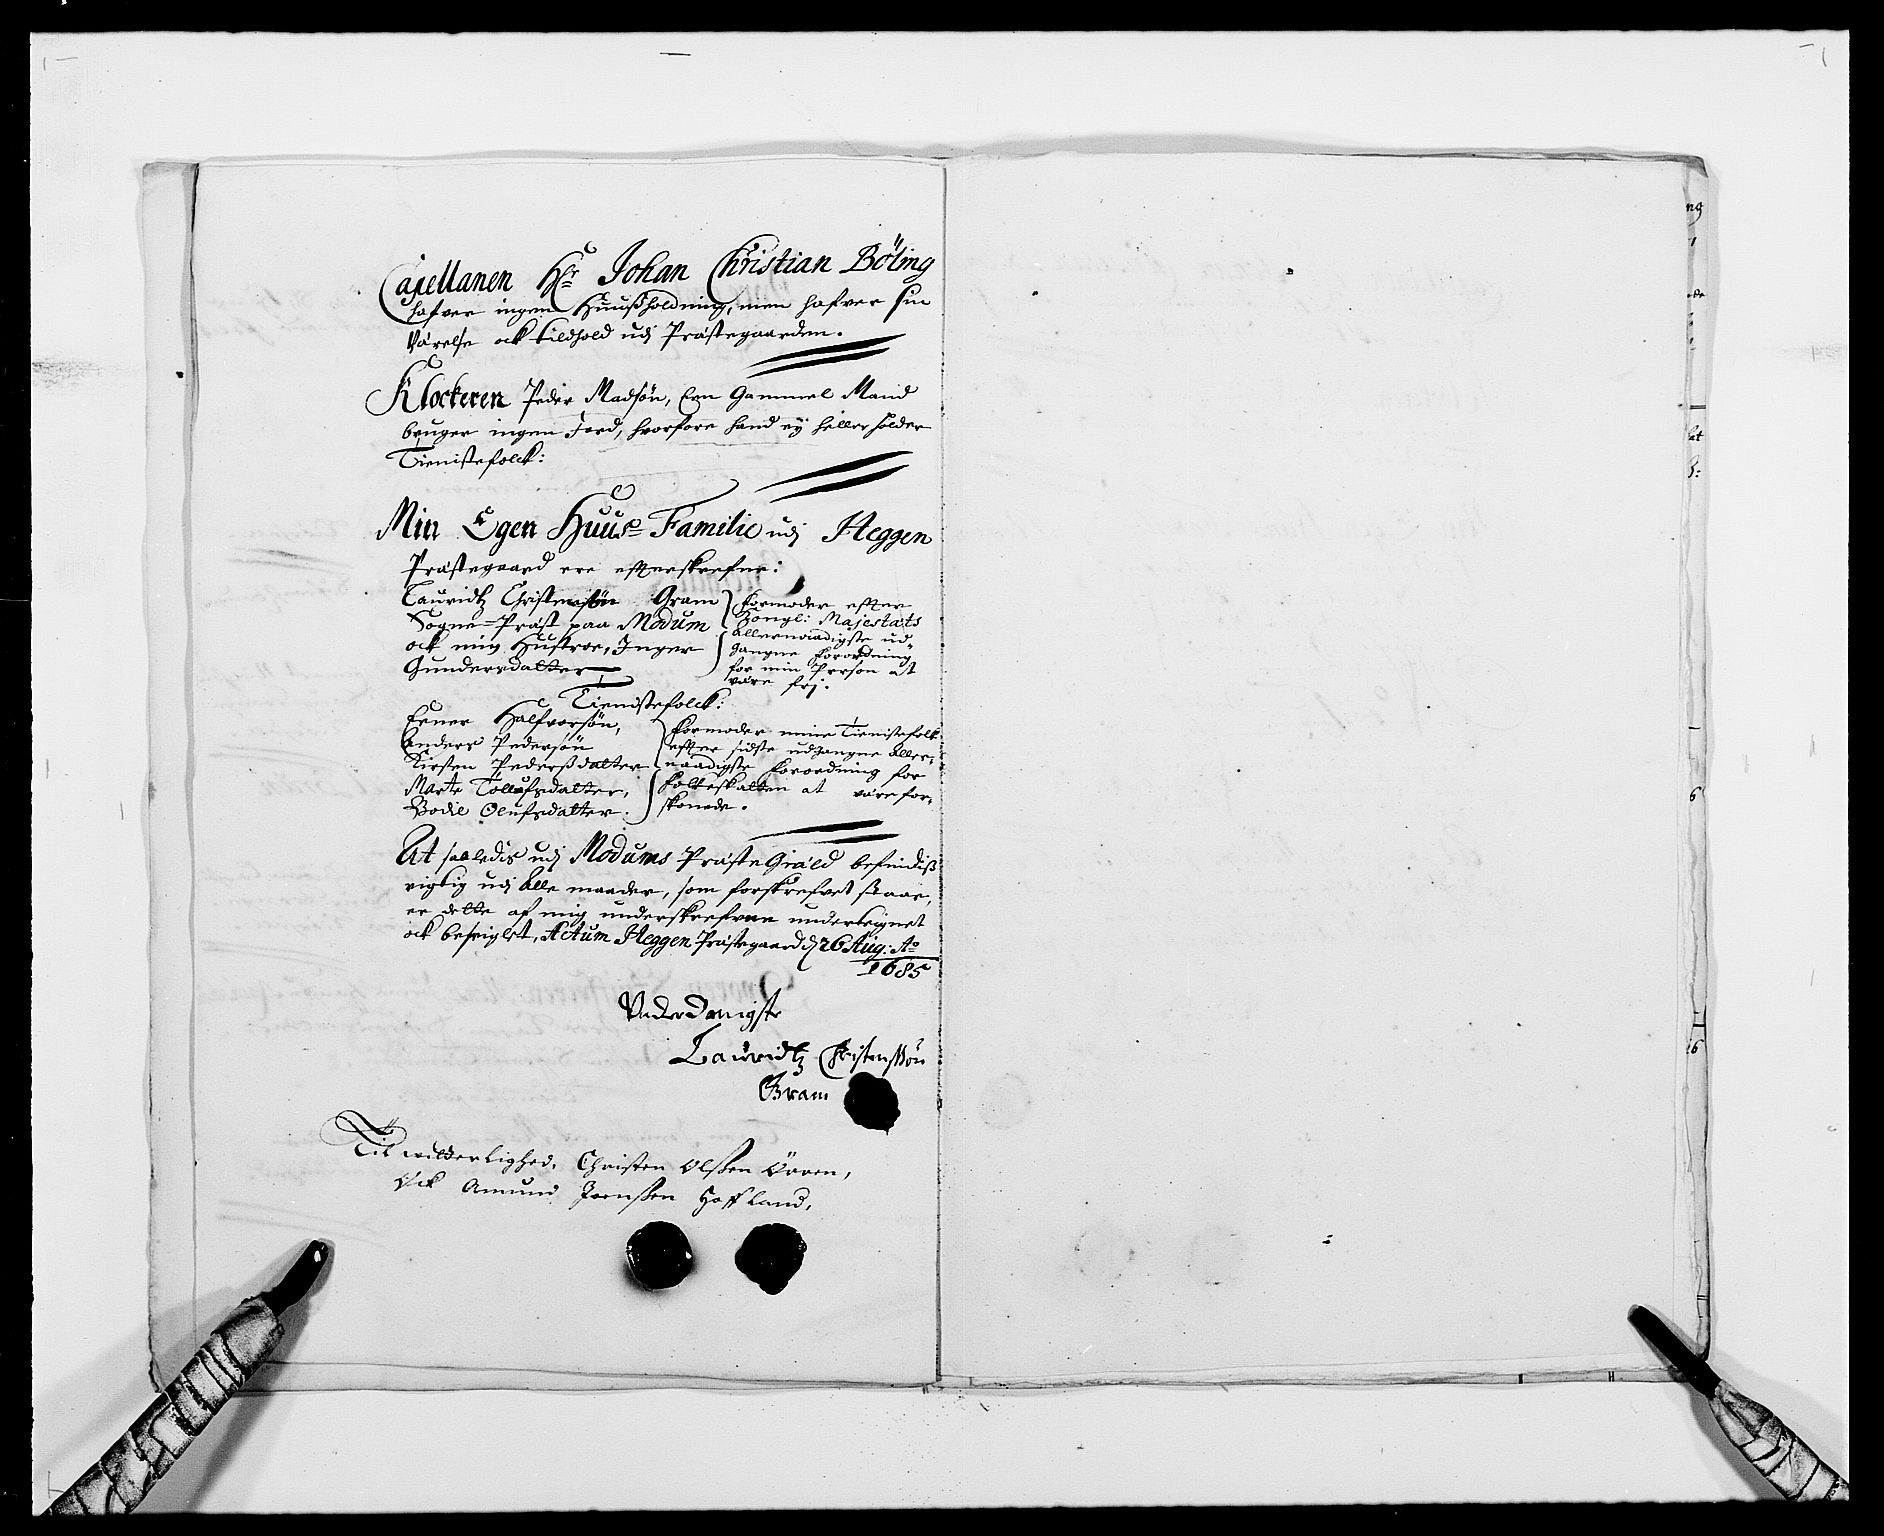 Capellanen Hr Johan Christian Böling
hafver ingen Huusßholdning, men hafver sin
Värelse ock tilhold udj Præstegaarden.
Klockeren Peder Madsön, Een Gammel Mand
bruger ingen Jord, hvorfore hand ey heller holder
Tienistefolck:
Min Egen Huus-Familie udj Heggen
Præstegaard ere efterskrefne:
Lauridtz Christensön Gram
Sogne-Præst paa Modum
ock min Hustroe, Inger
Gundersdatter
Formoder efter
Kongl: Majestæts
allernaadigste ud-
gangne forordning
for min Person at
være frj.
Tienistefolck:
Erner Halfvorsön,
Anders Pedersön
Kirsten Pederßdatter
Marte Tollufsdatter,
Bodil Olufsdatter.
Formoder mine Tienistefolk
efter sidste udgangne Aller-
naadigste forordning for
Folkeskatten at være for-
skonede.
At saaledis udj Modums Præste Giæld befindiß
rigtig udj Alle maader, som forskrefvet staar,
er dette af mig underskrefvne underteignet
ock beseiglet, Actum Heggen Præstegaard d 26 Aug: Ao
1685
Underdanigste
Lauridtz Christensßön
Gram
Til witterlighed, Christen Olßen Ören,
Ock Amund Joenßen Hoffland,